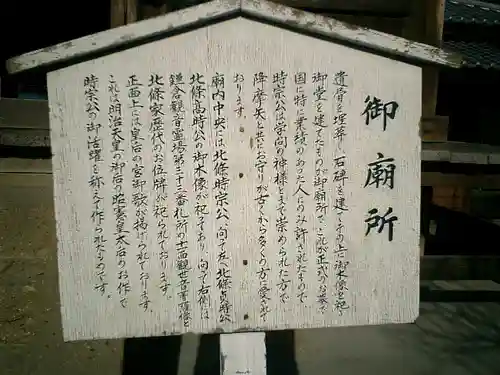 御廟所
遺骨を埋葬し石碑を建てその上に御木像を祀り
御堂を建てたものが御廟所でこれが正式なお墓で
国に特に業績のあった人にのみ許されたもので
時宗公は学問の神様とまで崇められた方で
降摩矢と共にお守りが古くから多くの方に愛されて
おります。
廟内中央には北條時宗公、向って左へ北條貞時公
北條高時公の御木像が祀てあり、向って右側には
鎌倉観音霊場第三十三番札所の十一面観世音菩薩像と
北條家歴代のお位牌が祀られております。
正面上には皇后の宮御歌が掲げられております
これは明治天皇の御后の昭憲皇太后のお作で
時宗公の御活躍を称えて作られたものです。